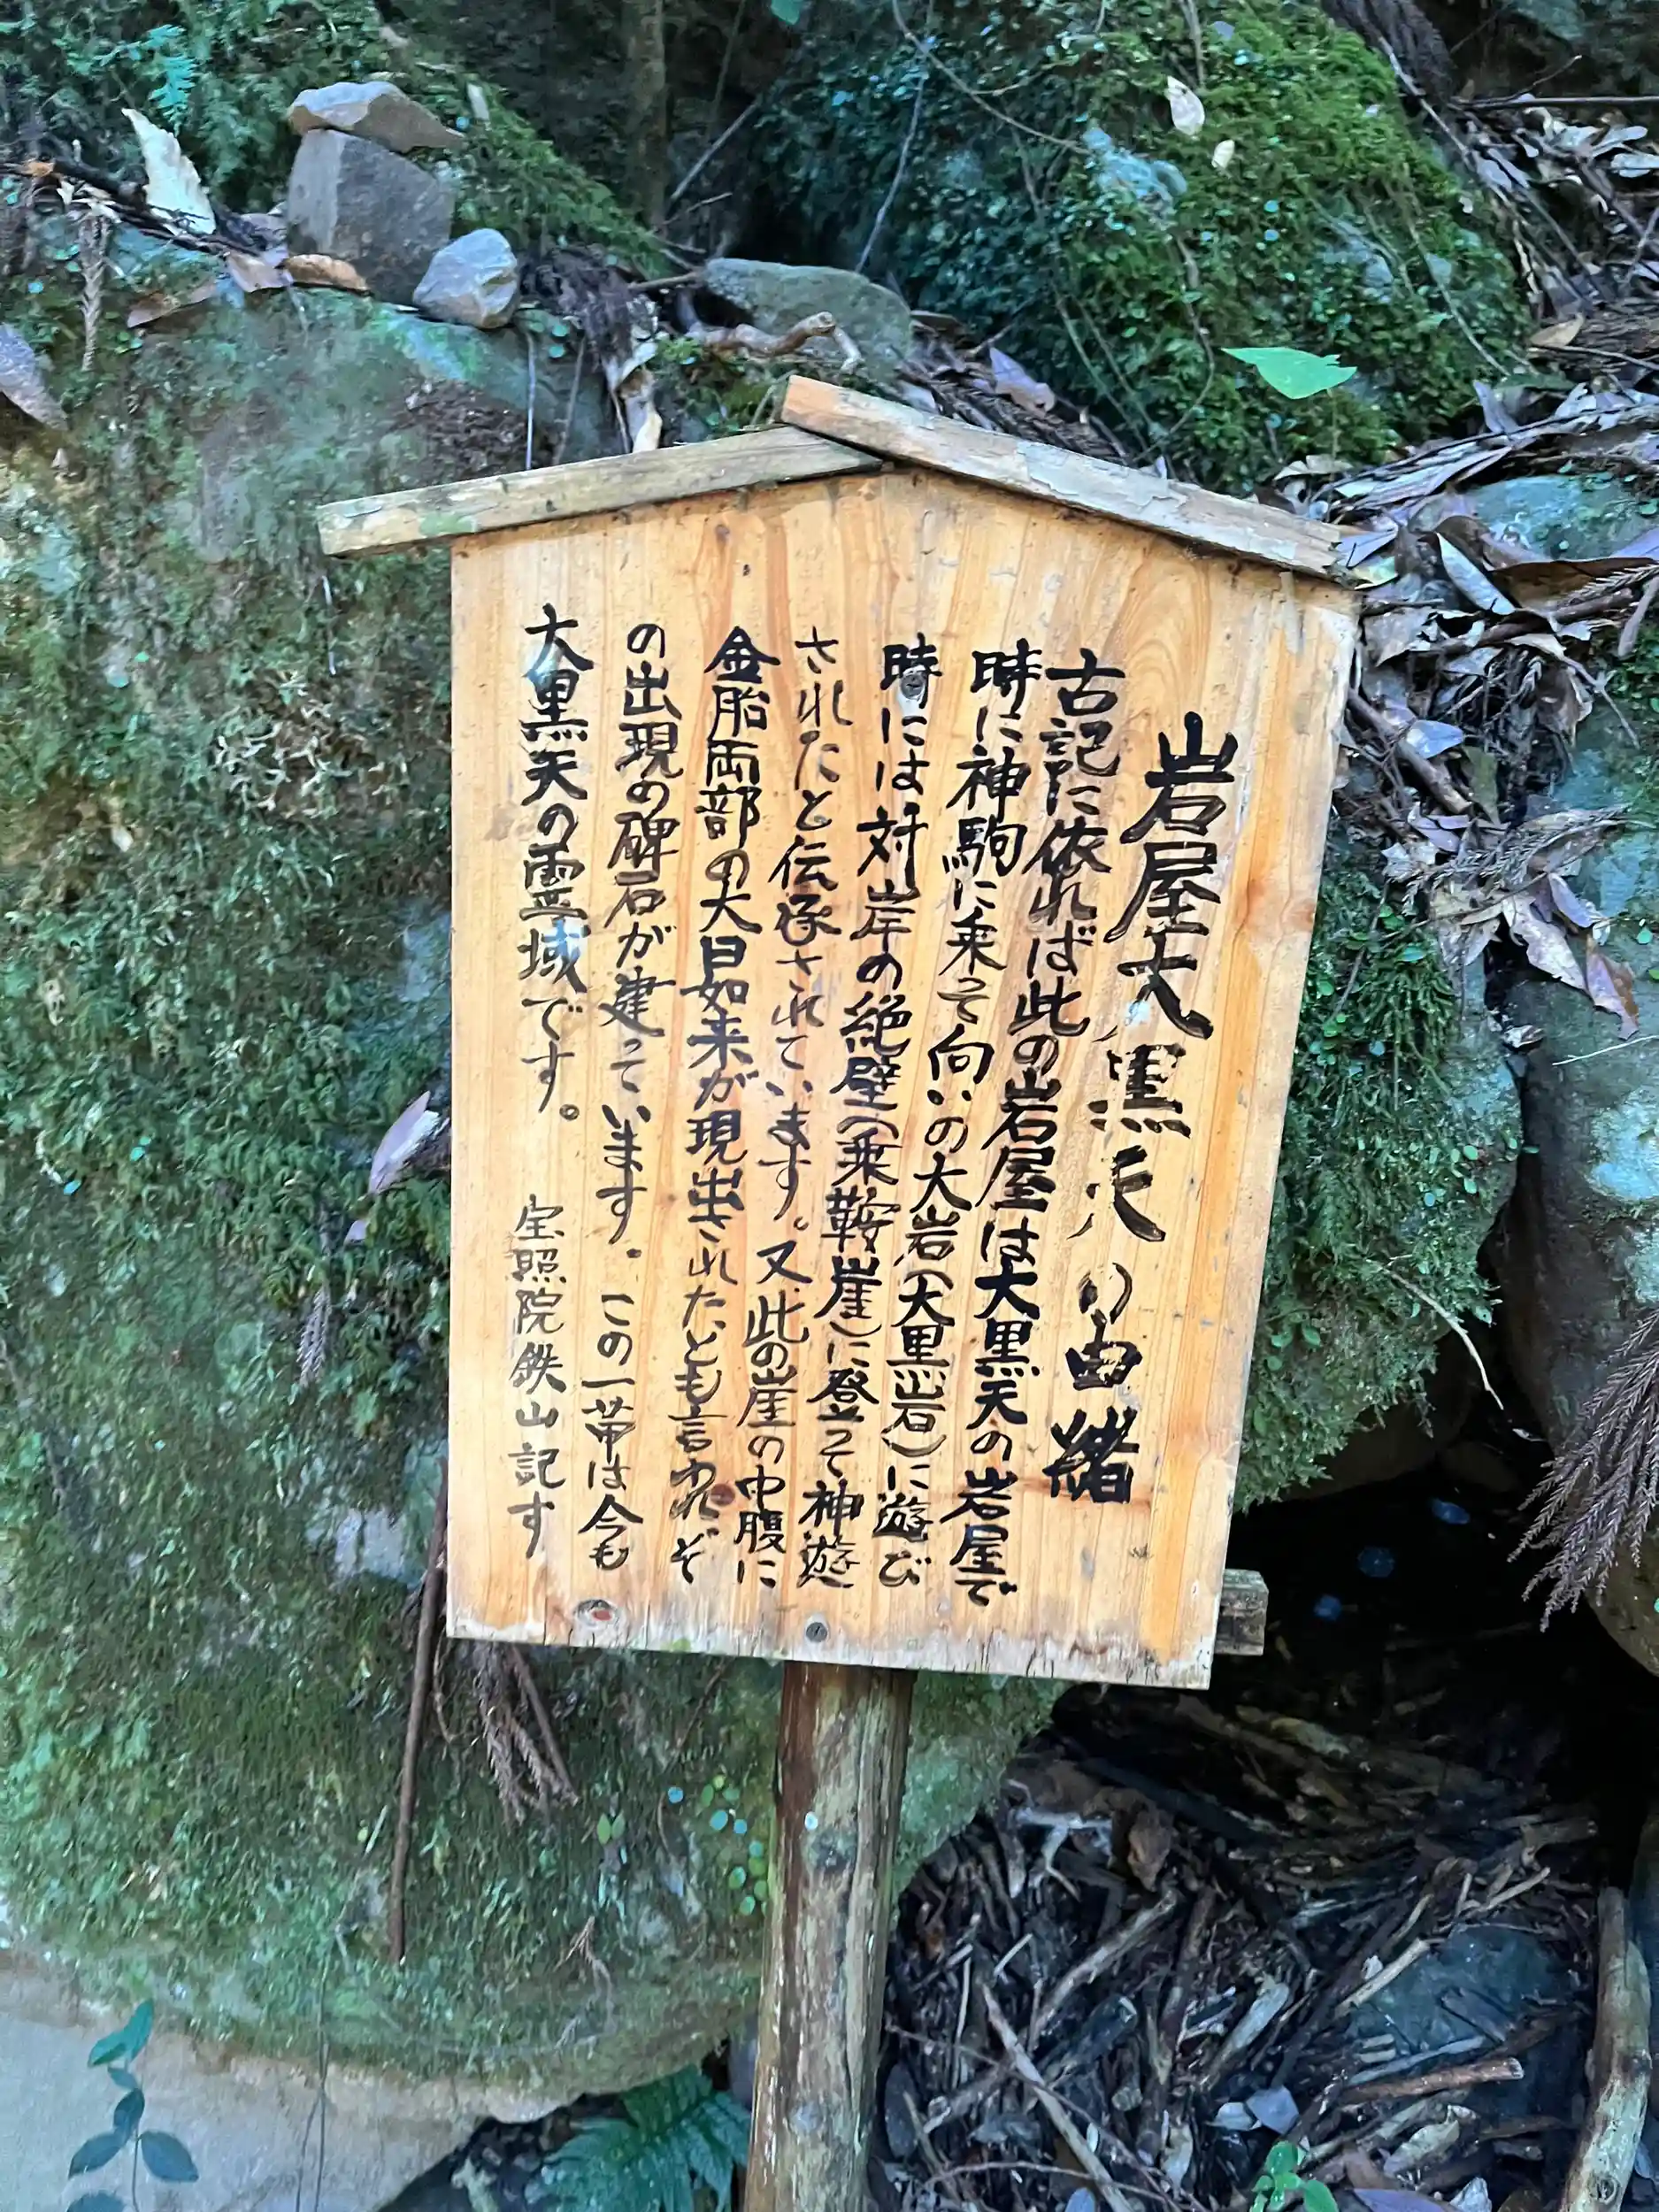 岩屋大黒天の由緒
古記に依れば此の岩屋は大黒天の岩屋で
時に神駒に乗って向いの大岩(大黒岩)に遊び
時には対岸の絶壁(乗鞍崖)に登って神遊
されたと伝承されています。又、此の崖の中腹に
金胎両部の大日如来が現出されたとも言われそ
の出現の碑石が建っています。この一帯は今も
大黒天の霊域です。
宝照院鉄山記す